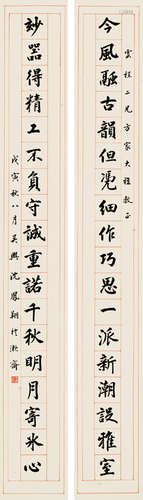 雲程二兄方家大雅教正
今風融古韻但凭細作巧思一派新潮説雅室
妙器得精工不負守誠重諾千秋明月寄氷心
戊寅秋八月吴興沈鳳翔於漱齋